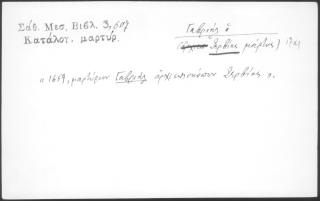 Σάθ. Μεσ. Βιβλ. 3, 607
Κατάλογ. μαρτύρ.
Γαβριὴλ ὁ
Σερβίας μάρτυς)
"1659, μαρτύριον Γαβριὴλ ἀρχιεπισκόπου Σερβίας".